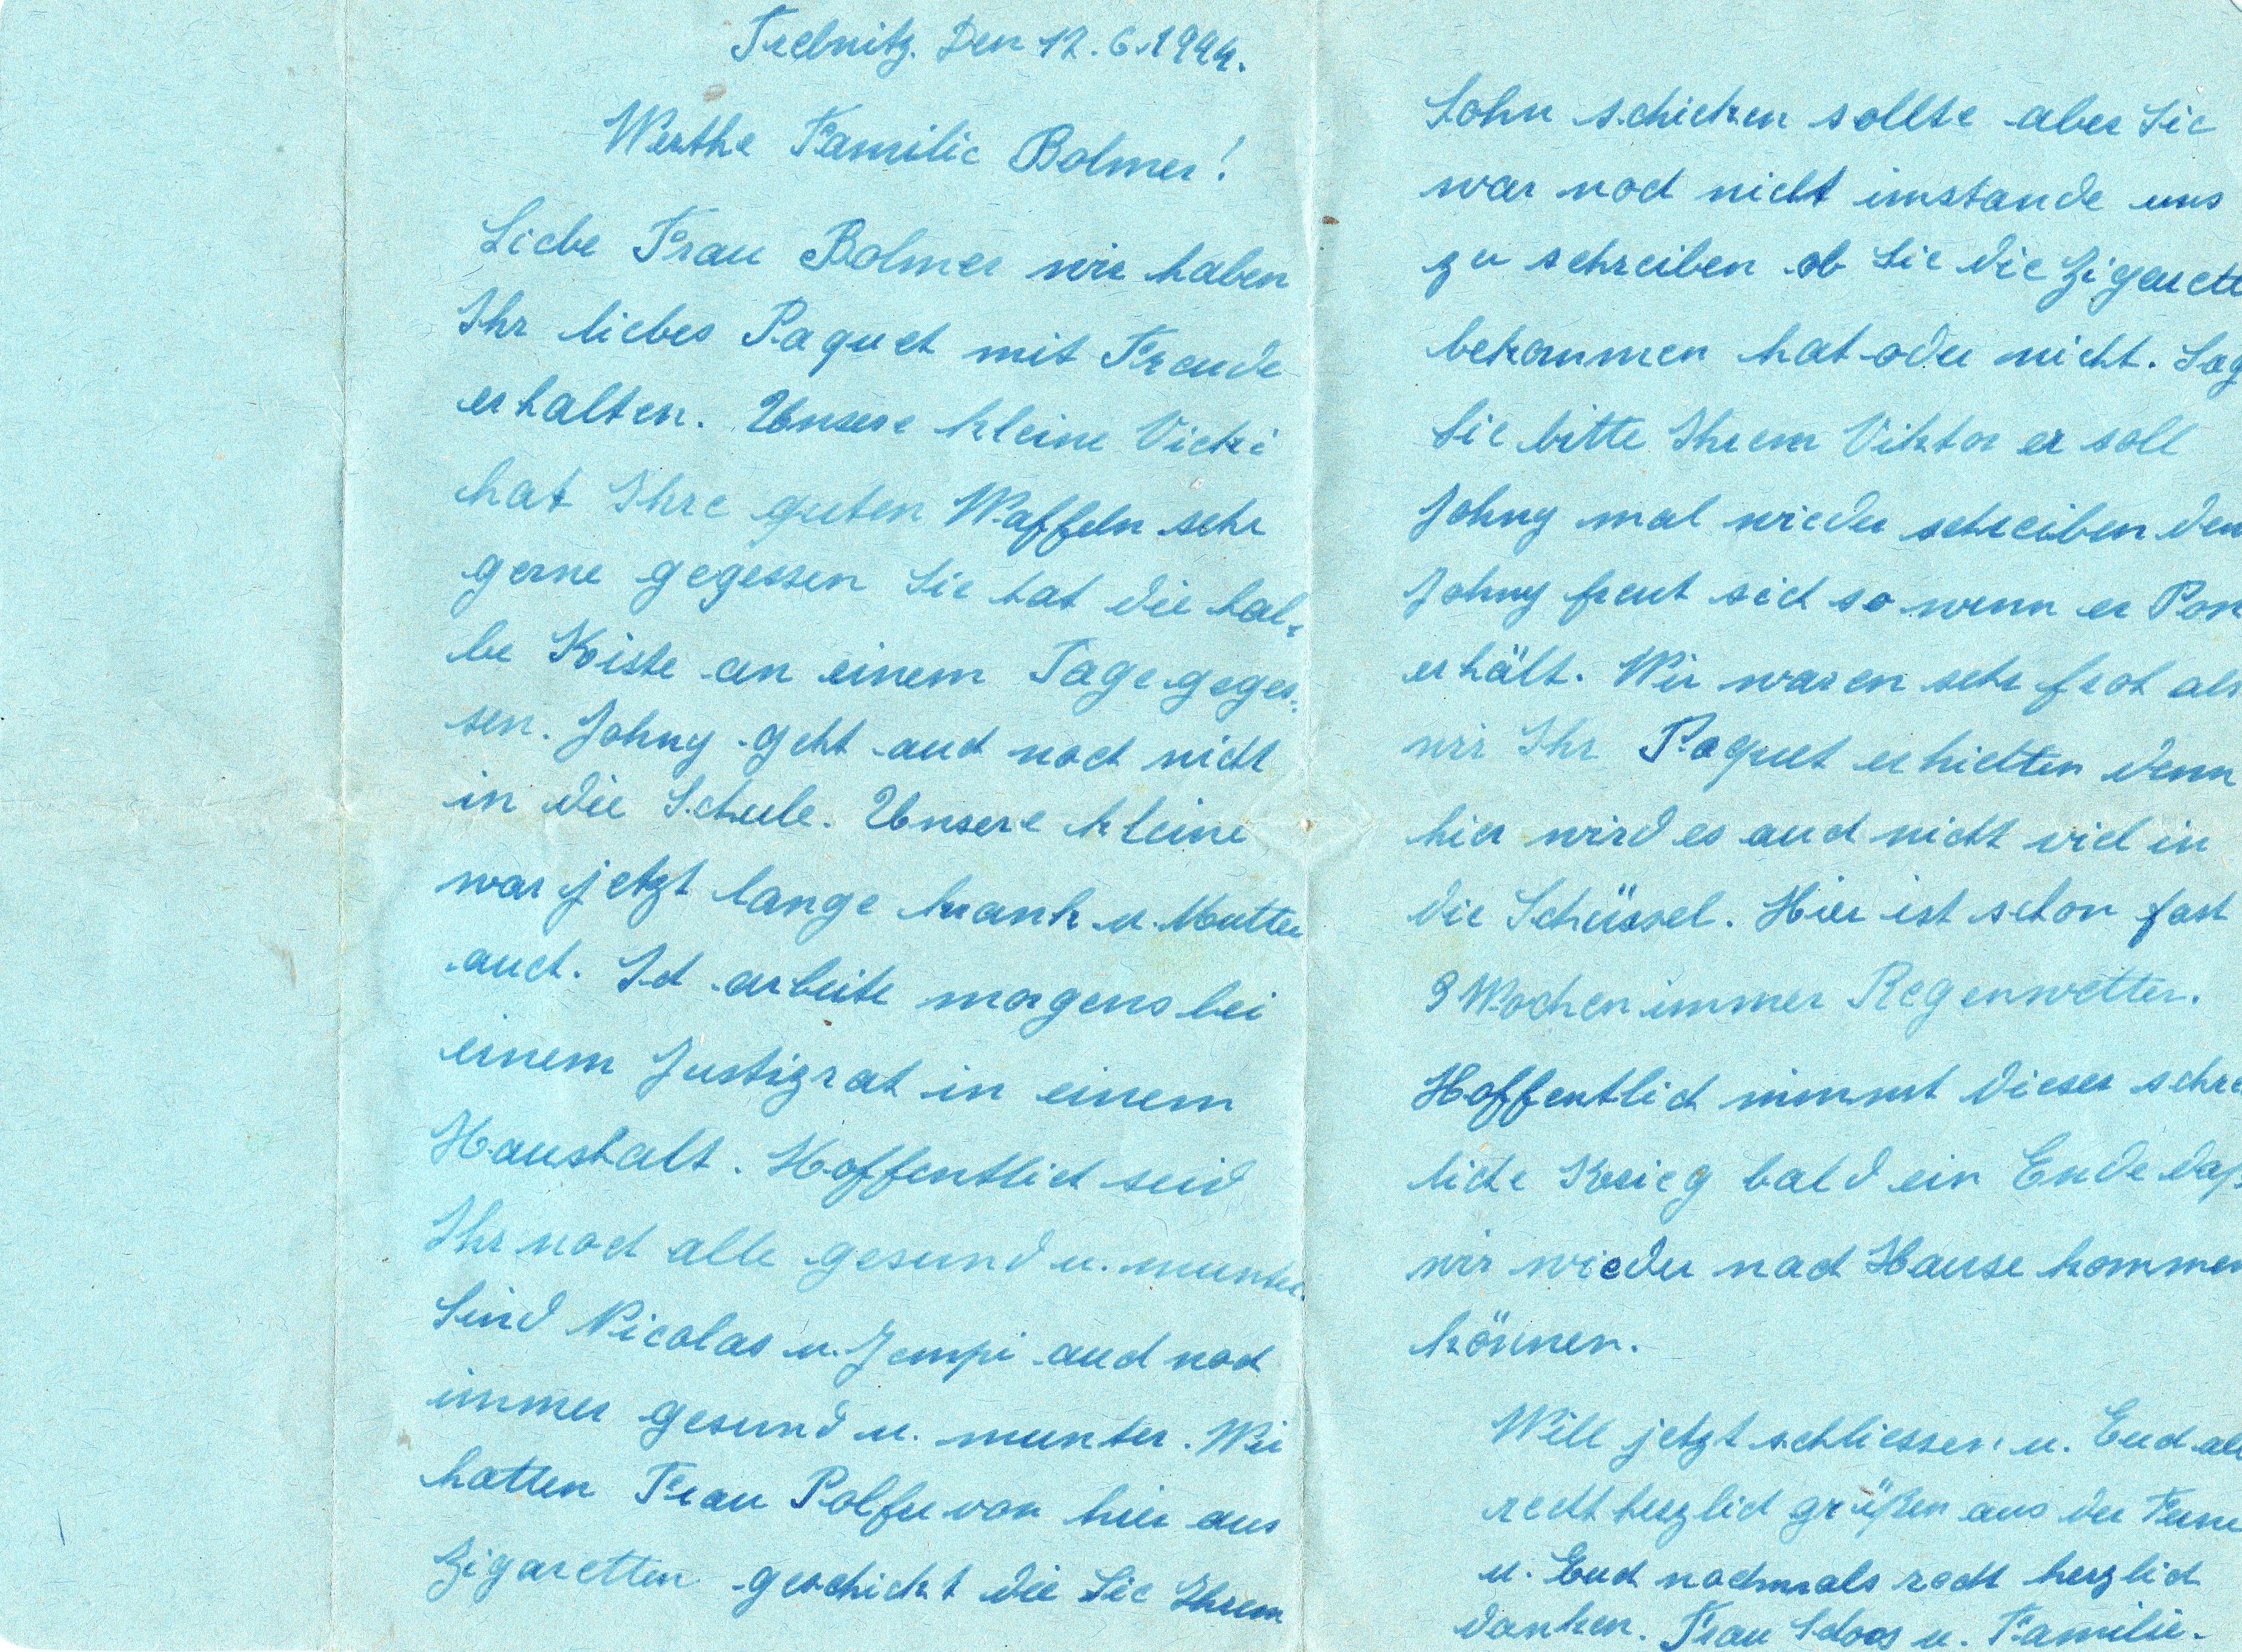 Trebnitz. Den 12.6.1944.
Werthe Familie Bolmer!
Liebe Frau Bolmer wir haben
Ihr liebes Paquet mit Freude
erhalten. Unsere kleine Vicki
hat Ihre guten Waffeln sehr
gerne gegessen Sie hat die hal-
be Kiste an einem Tage geges-
sen. Johny geht auch noch nicht
in die Schule. Unsere kleine
war jetzt lange krank u. Mutter
auch. Ich arbeite morgens bei
einem Justizrat in einem
Haushalt. Hoffentlich seid
Ihr noch alle gesund u. munter.
Sind Nicolas u. Jempi auch noch
immer gesund u. munter. Wir
hatten Frau Polfer von hier aus
Zigaretten geschickt die Sie Ihrem
Sohn schicken sollte aber Sie
war noch nicht imstande uns
zu schreiben ob Sie die Zigarett
bekommen hat oder nicht. Sag
Sie bitte Ihrem Viktor er soll
Johny mal wieder schreiben den
Johny freut sich so wenn er Pos
erhält. Wir waren sehr froh als
wir Ihr Paquet erhielten denn
hier wird es auch nicht viel in
die Schüssel. Hier ist schon fast
Wochen immer Regenwetter.
Hoffentlich nimmt dieser schre
liche Krieg bald ein Ende daß
wir wieder nach Hause kommen
können.
Will jetzt schliessen u. Euch all
recht herzlich grüßen aus der Ferne
u. Euch nochmals recht herzlich
danken. Frau u. Familie.